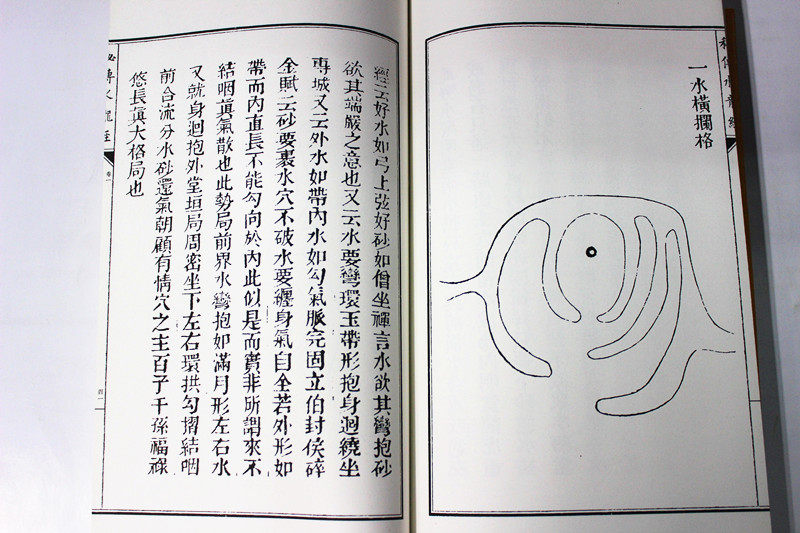 秘傳水龍經
一水橫攔格
經云好水如弓上弦好砂如僧坐禪言水欲其彎抱砂
欲其端嚴之意也又云水要彎環玉帶形抱身迴繞坐
專城又云外水如帶內水如勾氣脈完固立伯封侯碎
金賦云砂要裹水穴不破水要纏身氣自全若外形如
帶而內直長不能勾向於內此似是而實非所謂來不
結咽眞氣散也此勢局前界水彎抱如滿月形左右水
又就身迴抱外堂垣局周密坐下左右環拱勾摺結咽
前合流分水砂還氣朝顧有情穴之主百子千孫福祿
悠長眞大格局也
秘傳水龍經
卷一